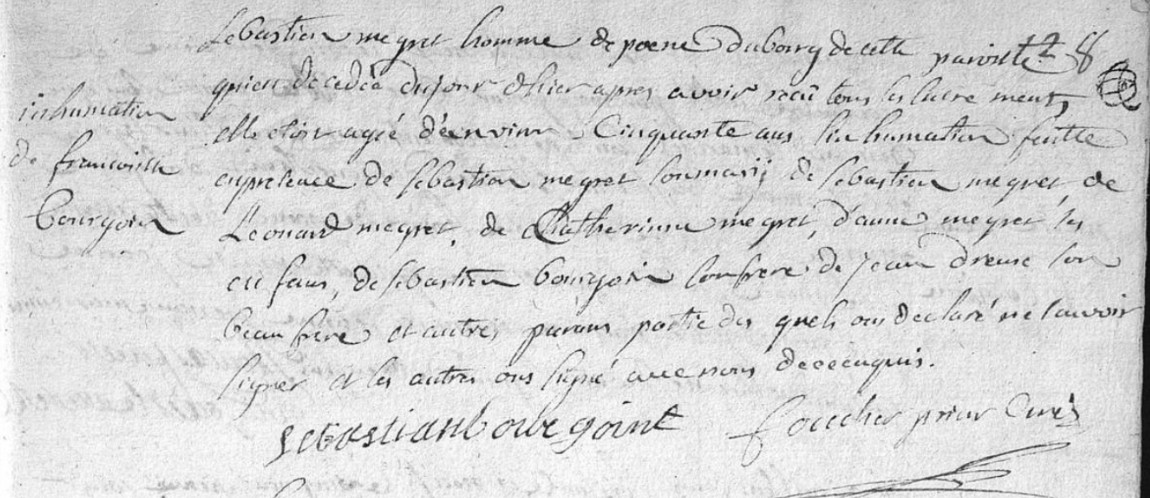 Sebastien megret homme de peene du bourg de cette paroisse
qui est decedée du jour d'hier apres avoir reçu tous les sacrements,
elle etoit agée d'environ Cinquante ans l'inhumation faitte
en presence de sebastien megret son marij de sebastien megret, de
Leonard megret, de Chatherinne megret, d'anne megret ses
enfans, de sebastien bourgoin son frere de jean dreue son
beau frere et autres parans partie des quels ont declaré ne savoir
signer et les autres ont signé avec nous de ce enquis.
inhumation
de francoisse
bourgoin
sebastian bouregoint
foucher prieur Curé